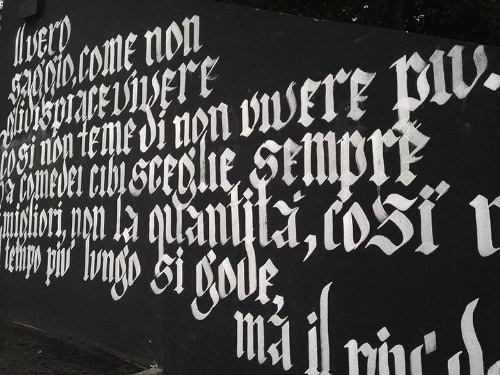 il vero
saggio, come non
gli dispiace vivere
così non teme di non vivere più.
ma come dei cibi sceglie sempre
migliori, non la quantità, così
tempo più lungo si gode,
ma il più